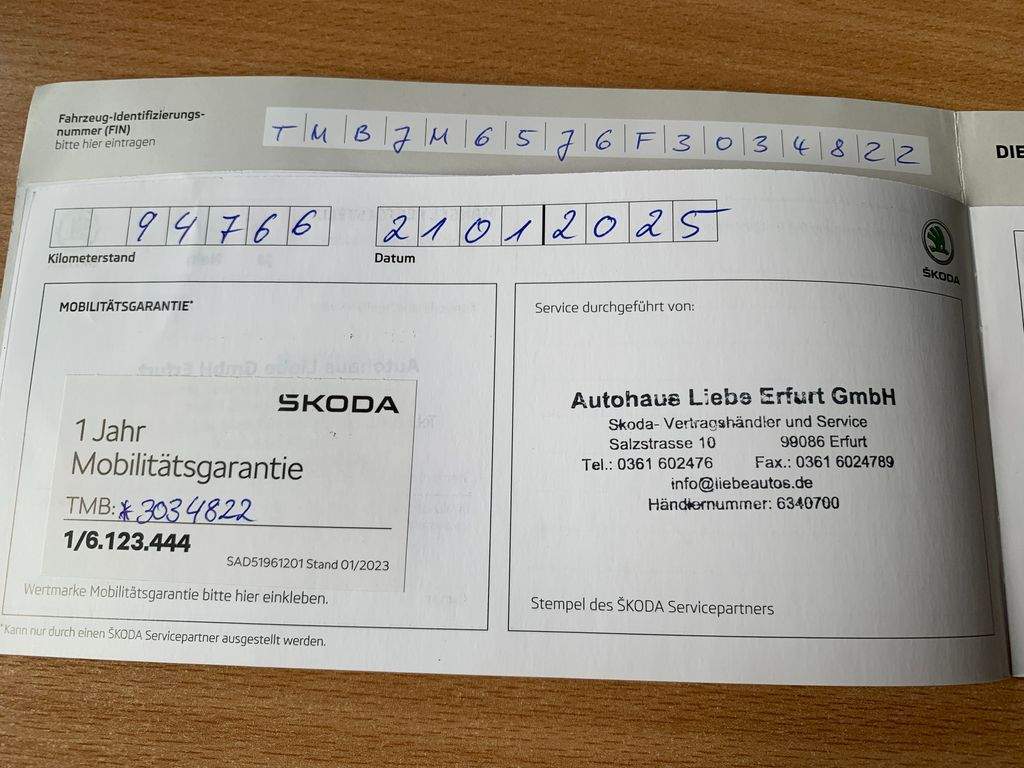 Fahrzeug-Identifizierungs-
nummer (FIN)
bitte hier eintragen
TMBJM6576F3034822
DIE
94766
Kilometerstand
21012025
Datum
ŠKODA
MOBILITÄTSGARANTIE*
ŠKODA
1 Jahr
Mobilitätsgarantie
TMB: *3034822
1/6.123.444
SAD51961201 Stand 01/2023
Wertmarke Mobilitätsgarantie bitte hier einkleben.
*Kann nur durch einen ŠKODA Servicepartner ausgestellt werden.
Service durchgeführt von:
Autohaus Liebe Erfurt GmbH
Skoda- Vertragshändler und Service
Salzstrasse 10 99086 Erfurt
Tel.: 0361 602476 Fax.: 0361 6024789
info@liebeautos.de
Händlernummer: 6340700
Stempel des ŠKODA Servicepartners